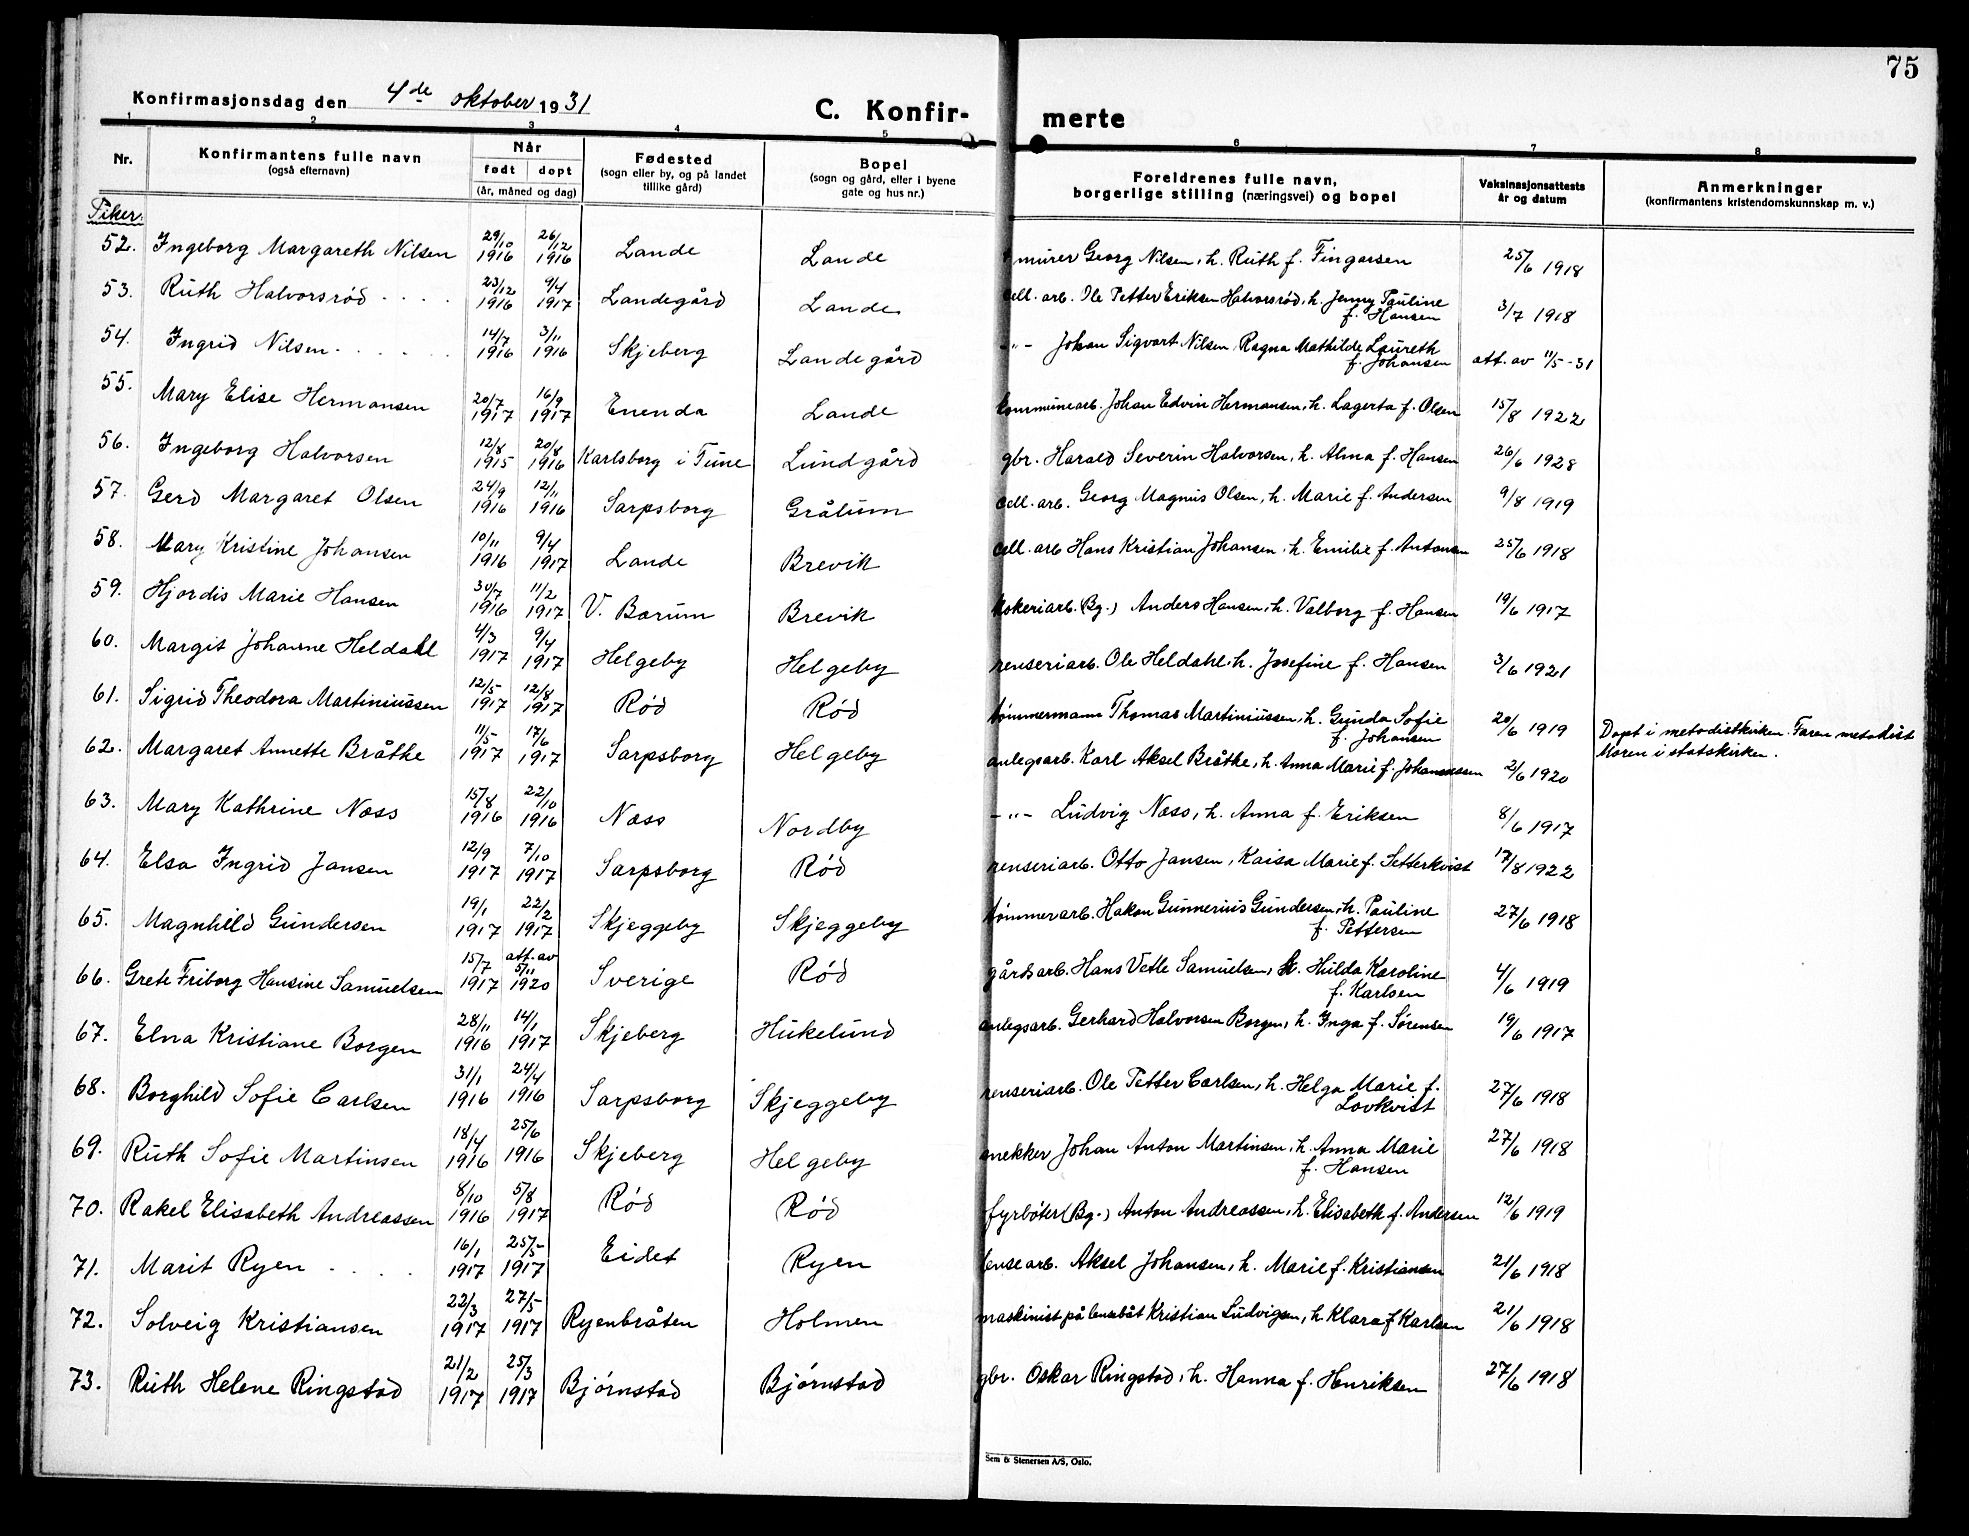 75
Konfirmasjonsdag den 4de oktober 1931
C. Konfirmerte
1 2 3 4 5 6 7 8
Nr. Konfirmantens fulle navn (også efternavn) Når født døpt (år, måned og dag) Fødested (sogn eller by, og på landet tillike gård) Bopel (sogn og gård, eller i byene gate og hus nr.) Foreldrenes fulle navn, borgerlige stilling (næringsvei) og bopel Vaksinasjonsattests år og datum Anmerkninger (konfirmantens kristendomskunnskap m. v.)
Piker.
52. Ingeborg Margareth Nilsen 29/10 1916 26/12 1916 Lande Lande murer Georg Nilsen, h. Ruth f. Fingarsen 25/6 1918
53. Ruth Halvorsrød 23/12 1916 9/4 1917 Landegård Lande cell. arb. Ole Petter Eriksen Halvorsrød, h. Jenny Pauline f. Hansen 3/7 1918
54. Ingrid Nilsen 14/7 1916 3/11 1916 Skjeberg Landegård -"- Johan Sigvart Nilsen, Ragna Mathilde Laureth f. Johansen att. av 11/5-31
55. Mary Elise Hermansen 20/7 1917 16/9 1917 Enenda Lande kommunearb. Johan Edvin Hermansen, h. Lagerta f. Olsen 15/8 1922
56. Ingeborg Halvorsen 12/8 1915 20/8 1916 Karlsborg i Tune Lundgård gbr. Harald Severin Halvorsen, h. Alma f. Hansen 26/6 1928
57. Gerd Margaret Olsen 24/9 1916 12/11 1916 Sarpsborg Grålum cell. arb. Georg Magnus Olsen, h. Marie f. Andersen 9/8 1919
58. Mary Kristine Johansen 10/11 1916 9/4 1917 Lande Brevik cell. arb Hans Kristian Johansen, h. Emilie f. Antonsen 25/6 1918
59. Hjordis Marie Hansen 30/7 1916 11/2 1917 V. Barum Brevik kokeriarb. (Bg.) Anders Hansen, h. Valborg f. Hansen 19/6 1917
60. Margit Johanne Heldahl 4/3 1917 9/4 1917 Helgeby Helgeby renseriarb. Ole Heldahl, h. Josefine f. Hansen 3/6 1921
61. Sigrid Theodora Martiniussen 12/5 1917 12/8 1917 Rød Rød tømmermann Thomas Martiniussen, h. Gunda Sofie f. Johansen 20/6 1919 Døpt i metodistkirken. Faren metodist Moren i statskirken.
62. Margaret Annette Bråthe 11/5 1917 17/6 1917 Sarpsborg Helgeby anlegsarb. Karl Aksel Bråthe, h. Anna Marie f. Johannessen 2/6 1920
63. Mary Kathrine Næss 15/8 1916 22/10 1916 Næss Nordby -"- Ludvig Næss, h. Anna f. Eriksen 8/6 1917
64. Elsa Ingrid Jansen 12/9 1917 7/10 1917 Sarpsborg Rød renseriarb. Otto Jansen, Kaisa Marie f. Setterkvist 17/8 1922
65. Magnhild Gundersen 19/1 1917 22/2 1917 Skjeggeby Skjeggeby tømmerarb. Hakon Gunnerius Gundersen, h. Pauline f. Pettersen 27/6 1918
66. Grete Friborg Hansine Samuelsen 15/7 1917 att. av 5/11 1920 Sverige Rød gårdsarb. Hans Vetle Samuelsen, h. Hulda Karoline f. Karlsen 4/6 1919
67. Elna Kristiane Borgen 28/11 1916 14/1 1917 Skjeberg Hukelund anlegsarb. Gerhard Halvorsen Borgen, h. Inga f. Sørensen 19/6 1917
68. Borghild Sofie Carlsen 31/1 1916 24/4 1916 Sarpsborg Skjeggeby renseriarb. Ole Petter Carlsen, h. Helga Marie f. Lovkvist 27/6 1918
69. Ruth Sofie Martinsen 18/4 1916 25/6 1916 Skjeberg Helgeby snekker Johan Anton Martinsen, h. Anna Marie f. Hansen 27/6 1918
70. Rakel Elisabeth Andreassen 8/10 1916 5/8 1917 Rød Rød fyrbøter (Bg.) Anton Andreassen, h. Elisabeth f. Andersen 12/6 1919
71. Marit Ryen 16/1 1917 25/5 1917 Eidet Ryen lensearb. Aksel Johansen, h. Marie f. Kristiansen 21/6 1918
72. Solveig Kristiansen 22/3 1917 27/5 1917 Ryenbråten Holmen maskinist på lensebåt Kristian Ludvigsen, h Klara f Karlsen 21/6 1918
73. Ruth Helene Ringstad 21/2 1917 25/3 1917 Bjørnstad Bjørnstad gbr. Oskar Ringstad, h. Hanna f. Henriksen 27/6 1918
Sem & Stenersen A/S, Oslo.